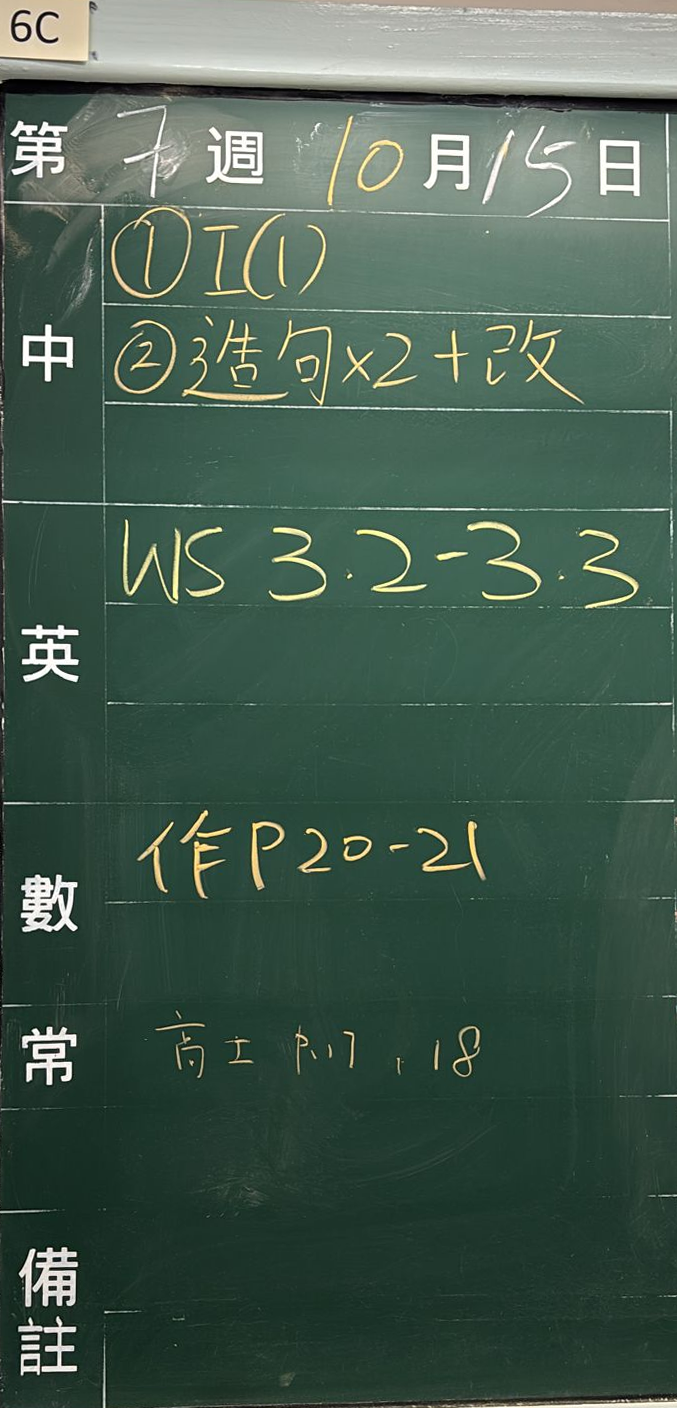 6C
第 7 週 10 月 15 日
中
①工(1)
②造句x2+改
英
WS 3.2-3.3
數
作P20-21
常
P.17, 18
備註